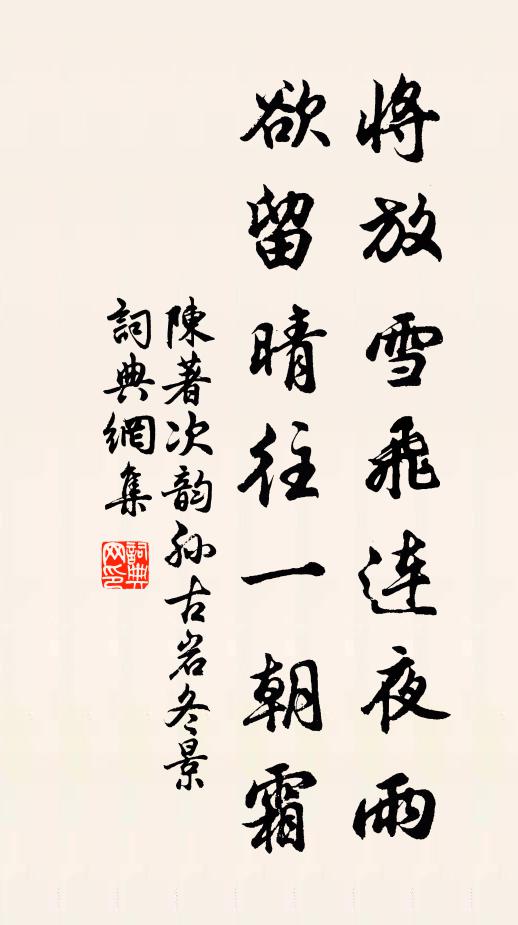 將放雪飛連夜雨
欲留晴往一朝霜
陳著次韵孙古岩冬景
詞典網集
詞典网印